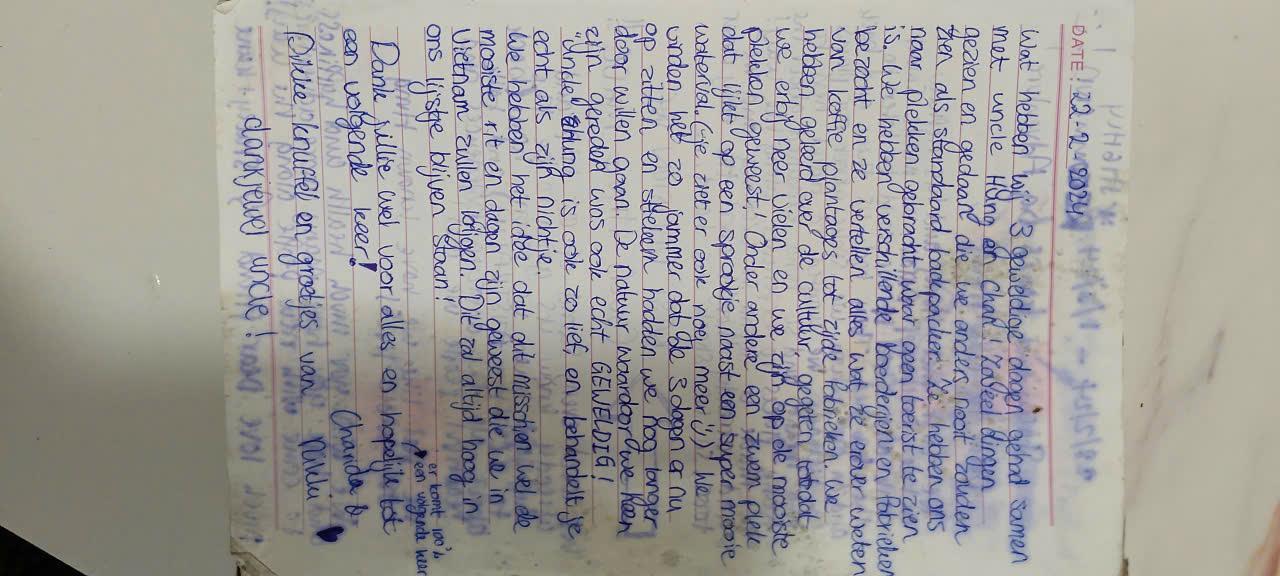 DATE: 22-2-2024
Wat hebben wij 3 geweldige dagen gehad samen
met uncle Hung en Chau! Zoveel dingen
gezien en gedaan die we anders nooit zouden
zien als standaard backpacker. Ze hebben ons
naar plekken gebracht waar geen toerist te zien
is. We hebben verschillende boerderijen en fabrieken
bezocht en ze vertellen alles wat ze erover weten
van koffie plantages tot zijde fabrieken. We
hebben geleerd over de cultuur, gegeten totdat
we erbij neer vielen en we zijn op de mooiste
plekken geweest! Onder andere een zwem plek
dat lijkt op een sprookje naast een super mooie
waterval. (je ziet er ook nog meer ;) ) We
vinden het zo jammer dat de 3 dagen er nu
op zitten en stiekem hadden we nog langer
door willen gaan. De natuur waardoor we heen
zijn gereden was ook echt GEWELDIG!
Uncle Hung is ook zo lief, en behandelt je
echt als zijn nichtje.
We hebben het idee dat dit misschien wel de
mooiste rit en dagen zijn geweest die we in
Vietnam zullen krijgen. Dit zal altijd hoog in
ons lijstje blijven staan!
Dank jullie wel voor alles en hopelijk tot
een volgende keer!
er komt 100%
een volgende keer
Dikke knuffel en groetjes van
&
Lulu
dankjewel uncle!